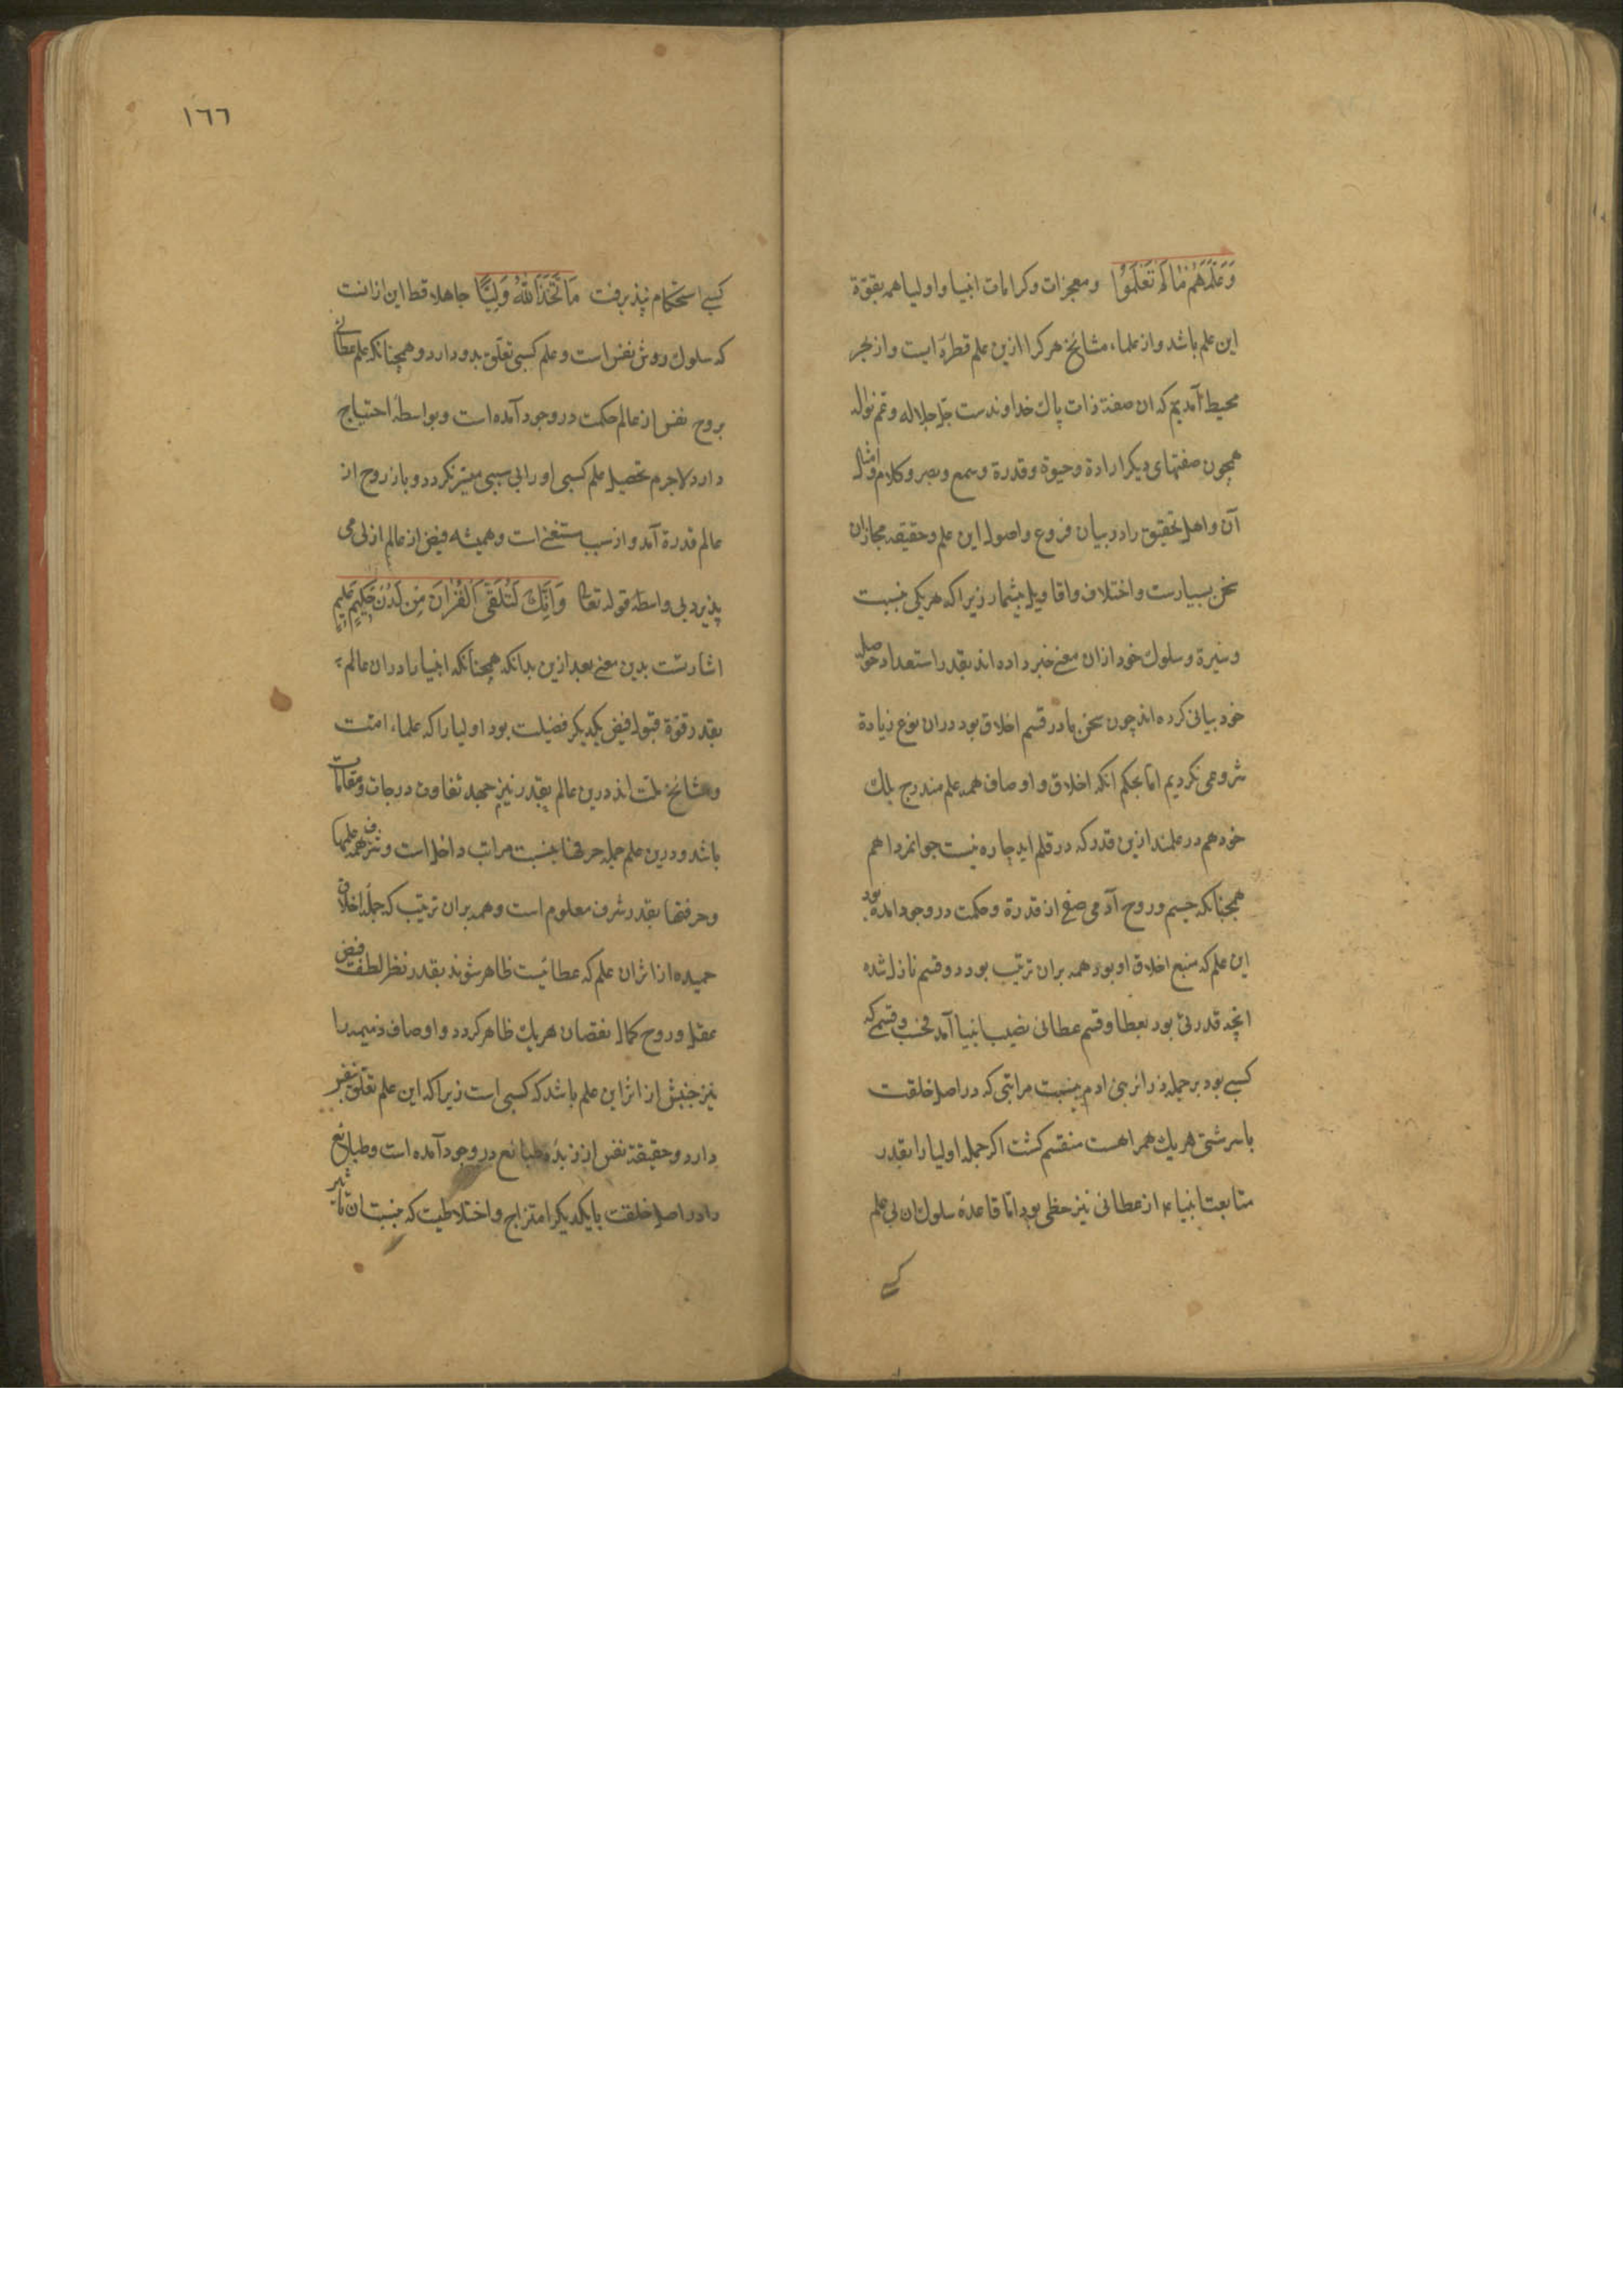 وَعَلَّمَهُم مَا لَم تَعْلَمُوا و معجزات و کرامات انبیا و اولیا همه بقوّة
این علم باشد و از علماء مشائخ هر کرا ازین علم قطرۀ ایست و از بحر
محیط آمدیم که ان صفة ذات پاك خداوندست جلّ جلاله و عمّ نواله
همچون صفتهای دیکر ارادة و حیوة و قدرة و سمع و بصر و کلام و امثال
آن و اهل تحقیق را در بیان فروع و اصول این علم و حقیقه مجازان
سخن بسیارست و اختلاف و اقاویل بیشمار زیرا که هر یکی بنسبت
و سیرة و سلوك خود ازان معنی خبر داده اند بقدر استعداد حوصله
خود بیانی کرده اند چون سخن ما در قسم اخلاق بود دران نوع زیادة
شروعی نکردیم امّا بحکم انکه اخلاق و اوصاف همه علم مندرج بلك
خود هم در علمند ازین قدر که در قلم اید چاره نیست جوانمردا هم
همچنانکه جسم و روح آدمی صفی از قدرة و حکمت در وجود امده بود
این علم که منبع اخلاق او بود همه بران ترتیب بود دو قسم نازل شده
انچه قدرتی بود بعطا و قسم عطائی نصیب انبیا آمد فحسب و قسمی که
کسبی بود بر جمله ذرائر بنی ادم بنسبت مراتبی که در اصل خلقت
با سرشتی هر یك همراهست منقسم کشت اکر جمله اولیا را بقدر
متابعت انبیاء از عطائی نیز حظی بود امّا قاعدۀ سلوك ان بی علم
کسبی
١٦٦
کسبی استحکام نپذیرفت مَا اتَّخَذَ اللهُ وَلِیًّا جاهلا قط این ازانست
که سلوك روش نفس است و علم کسبی تعلّق بدو دارد و همچنانکه علم عطائی
بروح نفس از عالم حکمت در وجود آمده است و بواسطۀ احتیاج
دارد لاجرم تحصیل علم کسبی او را بی سببی میسّر نکردد و باز روح از
عالم قدرة آمد و از سبب مستغنی است و همیشه فیض از عالم ازلی می
پذیرد بی واسطه قوله تعالی وَاِنَّكَ لَتُلَقَّی الْقُرْانَ مِن لَدُنْ حَکِیمٍ عَلِیمٍ
اشارتست بدین معنی بعد ازین بدانکه همچنانکه انبیا را دران عالم
بقدر قوّة قبول فیض یکدیکر فضیلت بود اولیا را که علماء امّت
و مشائخ ملّت اند درین عالم بقدر نیز جهد تفاوت درجات و مقامات
باشد و درین علم جمله حرفتها بنسبت مراتب داخل است و شرف همه علمها
و حرفتها بقدر شرف معلوم است و همه بران ترتیب که جملۀ اخلاق
حمیده از اثر ان علم که عطائیست ظاهر شوند بقدر نظر لطف فیض
عقل و روح کمال نقصان هر یك ظاهر کردد و اوصاف ذمیمه را
نیز جنبش از اثر این علم باشد که کسبی است زیرا که این علم تعلّق بنفس
دارد و حقیقة نفس از زبدۀ طبائع در وجود آمده است و طبائع
را در اصل خلقت با یکدیکر امتزاج و اختلاطیست که بنسبت ان تأثیر